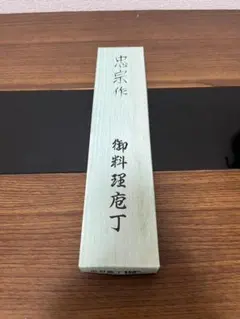 忠宗作
御料理庖丁